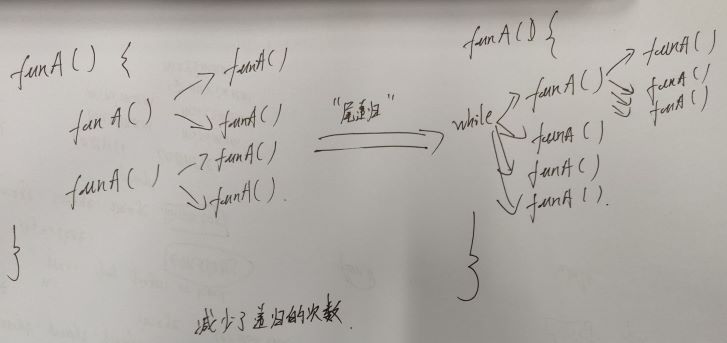 funA() {
funA()
funA()
funA()
funA()
funA()
funA().
}
"尾递归"
funA() {
while
funA()
funA()
funA()
funA()
funA()
funA()
funA().
}
减少了递归的次数.